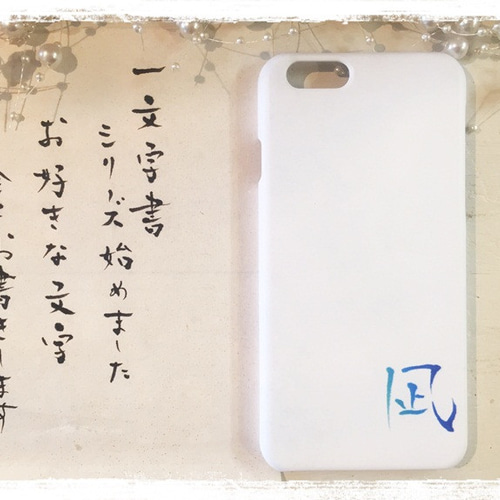 一文字書
シリーズ始めました
お好きな文字
書きします
凪